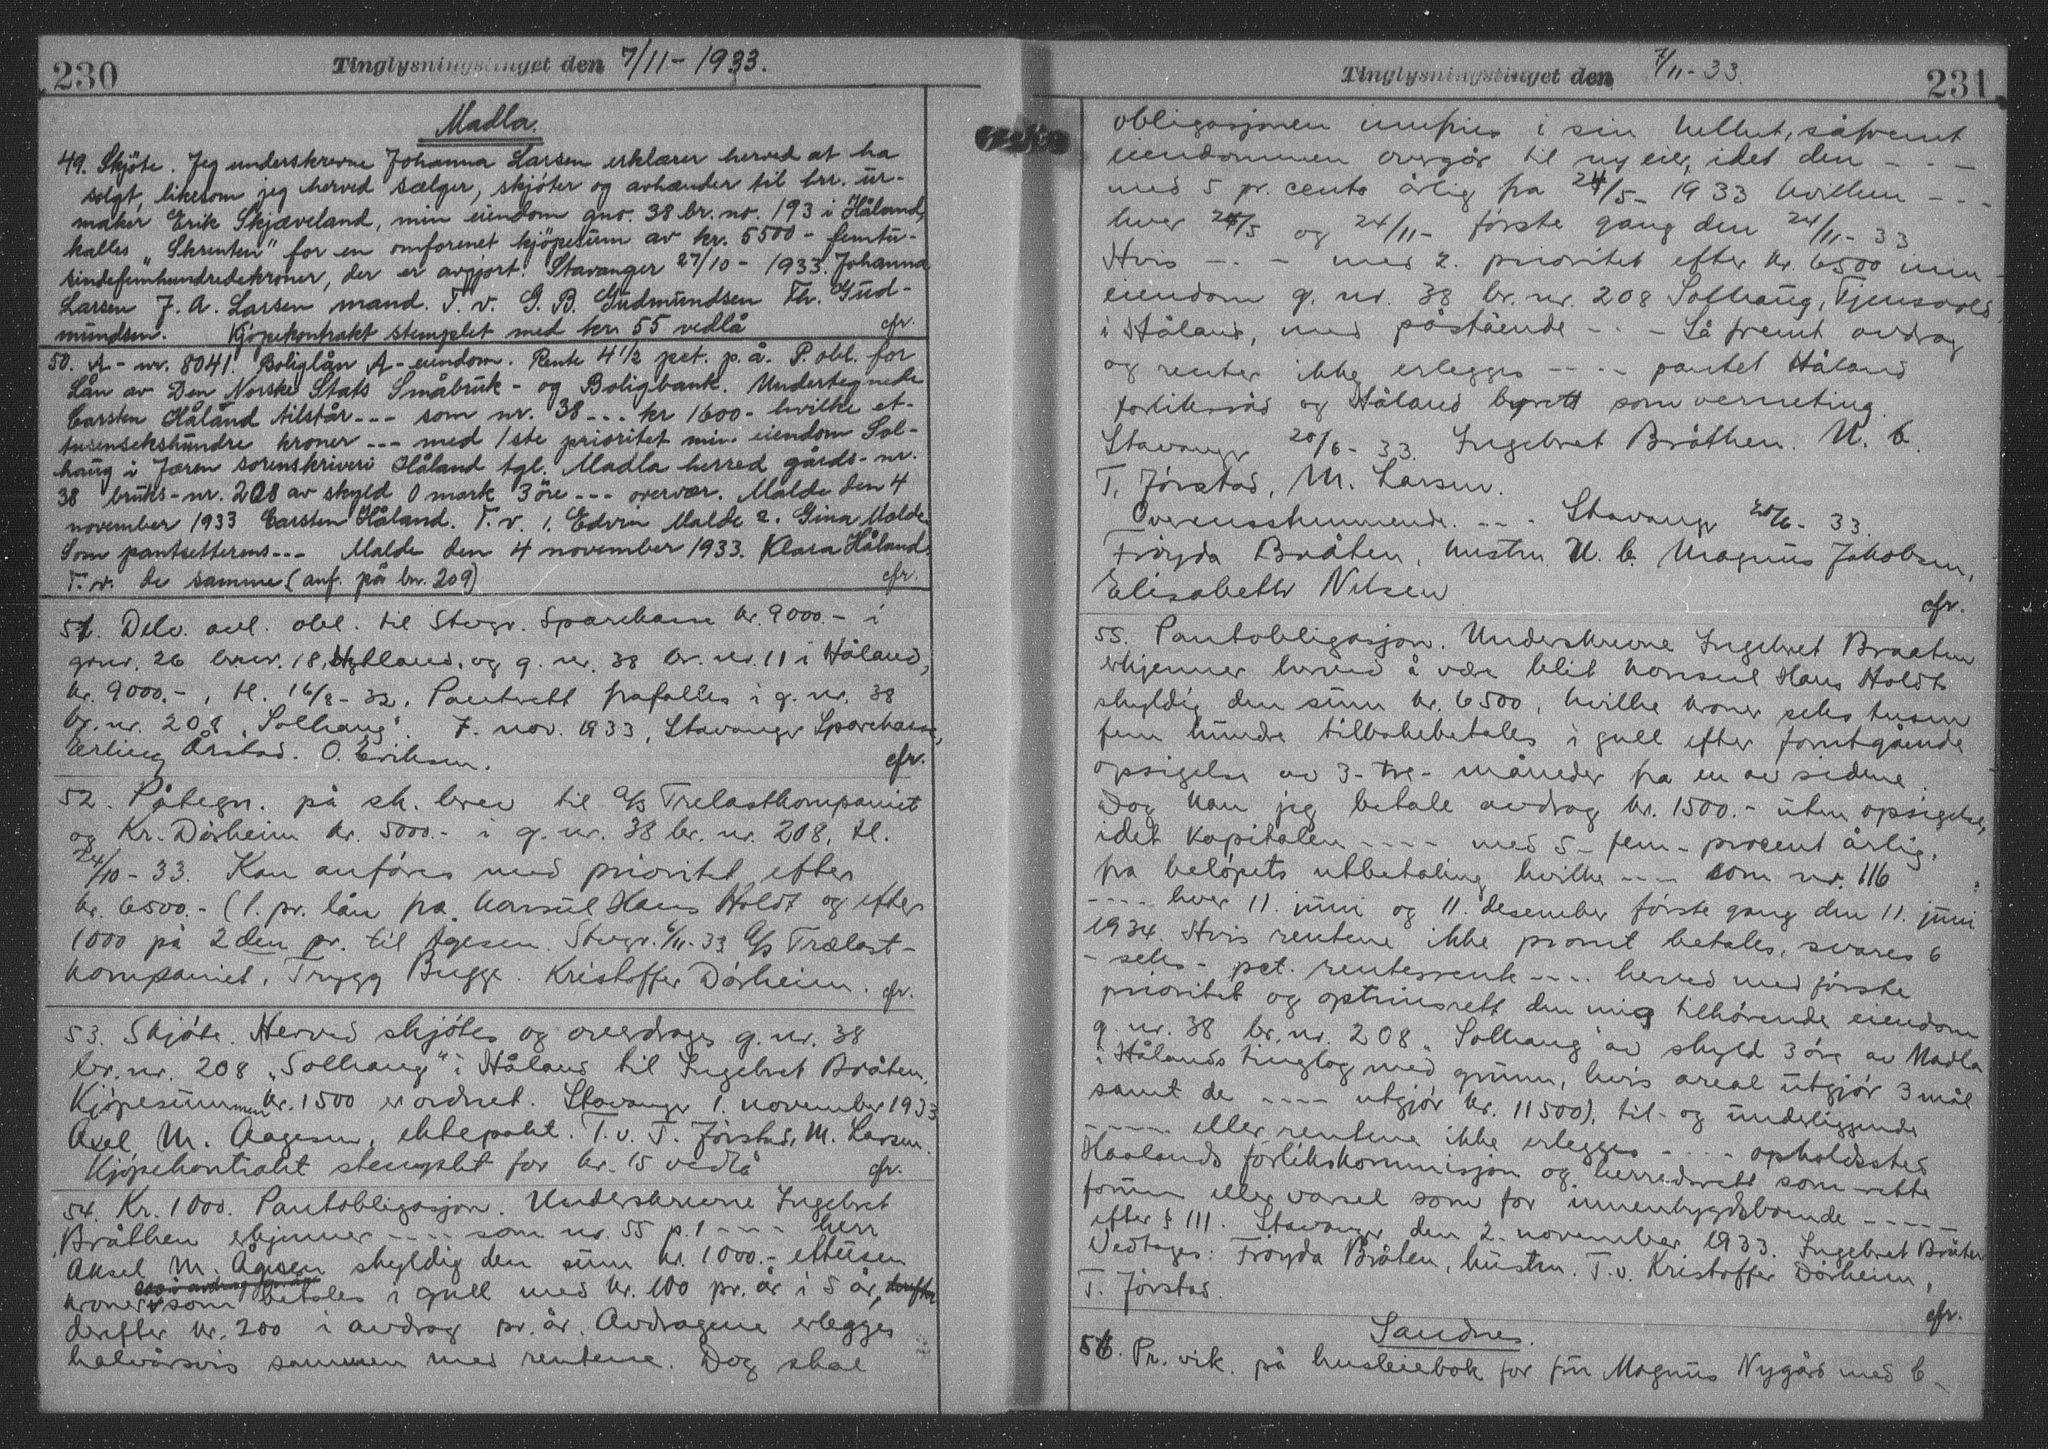 230
Tinglysningstinget den 7/11 - 1933.
Madla.
49. Skjöte. Jeg underskrevne Johanna Larsen erklærer herved at ha
solgt, likesom jeg herved sælger, skjöter og avhænder til hr. ur-
maker Erik Skjæveland, min eiendom gno. 38 br. no. 193 i Håland,
kalles "Skrenten" for en omforenet kjöpesum av kr. 5500 - femtu-
sindefemhundredekroner, der er avgjort. Stavanger 27/10 - 1933. Johanna
Larsen J. A. Larsen mand. T. v. G. B. Gudmundsen Th. Gud-
mundsen. Kjöpekontrakt stemplet med kr. 55 vedlå cfr.
50. A - nr. 8041. Boliglån A - eiendom. Rente 4 1/2 pct. p. å. P. obl. for
Lån av Den Norske Stats Småbruk - og Boligbank. Undertegnede
Carsten Håland tilstår --- som nr. 38 --- kr 1600 - hvilke et-
tusensekshundre kroner --- med 1ste prioritet min eiendom Sol-
haug i Jæren sorenskriveri Håland tgl. Madla herred gårds-nr.
38 bruks-nr. 208 av skyld 0 mark 3 öre --- overvær. Malde den 4
november 1933 Carsten Håland. T. v. 1. Edvin Malde 2. Gina Malde
Som pantsetterens --- Malde den 4 november 1933. Klara Håland.
T. v. de samme (anf. på bnr. 209) cfr.
51. Delv. avl. obl. til Stvgr. Sparekasse kr. 9000.- i
gnr. 26 bnr. 18, og g. nr. 38 br. nr. 11 i Håland,
kr. 9000.-, tl. 16/8 - 32. Pantrett frafalles i g. nr. 38
br. nr. 208 "Solhaug". 7. nov. 1933, Stavanger Sparekasse,
Erling Årstad. O. Eriksen. cfr.
52. Påtegn. på sk. brev til A/S Trelastkompaniet
og Kr. Dørheim kr. 5000.- i g. nr. 38 br. nr. 208, tl.
24/10 - 33. Kan anføres med prioritet efter
kr. 6500.- (1. pr. lån fra konsul Hans Holdt og efter
1000 på 2den pr. til Agesen. Stvgr. 6/11 - 33 A/S Trælast-
kompaniet, Trygg Bugge. Kristoffer Dørheim. cfr.
53. Skjøte. Herved skjøtes og overdrages g. nr. 38
br. nr. 208 "Solhaug" i Håland til Ingebret Bråten.
Kjøpesummen kr. 1500 er ordnet. Stavanger 1. november 1933
Axel M. Aagesen, ektepakt. T. v. T. Jørstad, M. Larsen.
Kjøpekontrakt stemplet for kr. 15 vedlå cfr.
54. Kr. 1000. Pantobligasjon. Underskrevne Ingebret
Bråthen erkjenner ---- som nr. 55 p. 1 --- herr
Aksel M. Ågesen skyldig den sum kr. 1000.- ettusen
kroner som betales i gull med kr. 100 pr. år i 5 år,
derefter kr. 200 i avdrag pr. år. Avdragene erlegges
halvårsvis sammen med rentene. Dog skal
Tinglysningstinget den 7/11 - 33.
231
obligasjonen innfries i sin helhet, såfremt
eiendommen overgår til ny eier, idet den - - -
med 5 pr. cento årlig fra 24/5 - 1933 hvilken - - -
hver 24/5 og 24/11 - første gang den 24/11 - 33
Hvis - - - med 2. prioritet efter kr. 6500 min
eiendom g. nr. 38 br. nr. 208 Solhaug, Tjensvold
i Håland, med påstående - - - Så fremt avdrag
og renter ikke erlegges ---- pantet Håland
forliksråd og Håland byrett som verneting.
Stavanger 20/6 - 33. Ingebret Bråthen. U. C.
T. Jørstad, M. Larsen.
Overensstemmende. --- Stavanger 20/6 - 33
Frøyda Bråten, hustru U. C. Magnus Jakobsen,
Elisabeth Nilsen cfr.
55. Pantobligasjon. Underskrevne Ingebret Braaten
erkjenner herved å være blit konsul Hans Holdt
skyldig den sum kr. 6500, hvilke kroner seks tusen
fem hundre tilbakebetales i gull efter forutgående
opsigelse av 3 - tre - måneder fra en av sidene.
Dog kan jeg betale avdrag kr. 1500.- uten opsigelse,
idet kapitalen ---- med 5 - fem - procent årlig,
fra beløpets utbetaling hvilke --- som nr. 116
---- hver 11. juni og 11. desember første gang den 11. juni
1934. Hvis rentene ikke promt betales, svares 6
- seks - pct. rentesrente ---- herved med første
prioritet og optrinsrett den mig tilhørende eiendom
g. nr. 38 br. nr. 208 "Solhaug" av skyld 3 øre av Madla
i Hålands tinglag med grunn, hvis areal utgjør 3 mål
samt de ---- utgjør kr. 11500), til- og underliggende
---- eller rentene ikke erlegges ---- opholdssted
Haalands forlikskommisjon og herredsrett som rette
forum eller varsel som for innenbygdsboende -----
efter § 111. Stavanger den 2. november 1933. Ingebret Bråten
Vedtages: Frøyda Bråten, hustru. T. v. Kristoffer Dørheim,
T. Jørstad. cfr.
Sandnes.
56. Pr. vik. på husleiebok for fru Magnus Nygård med C -